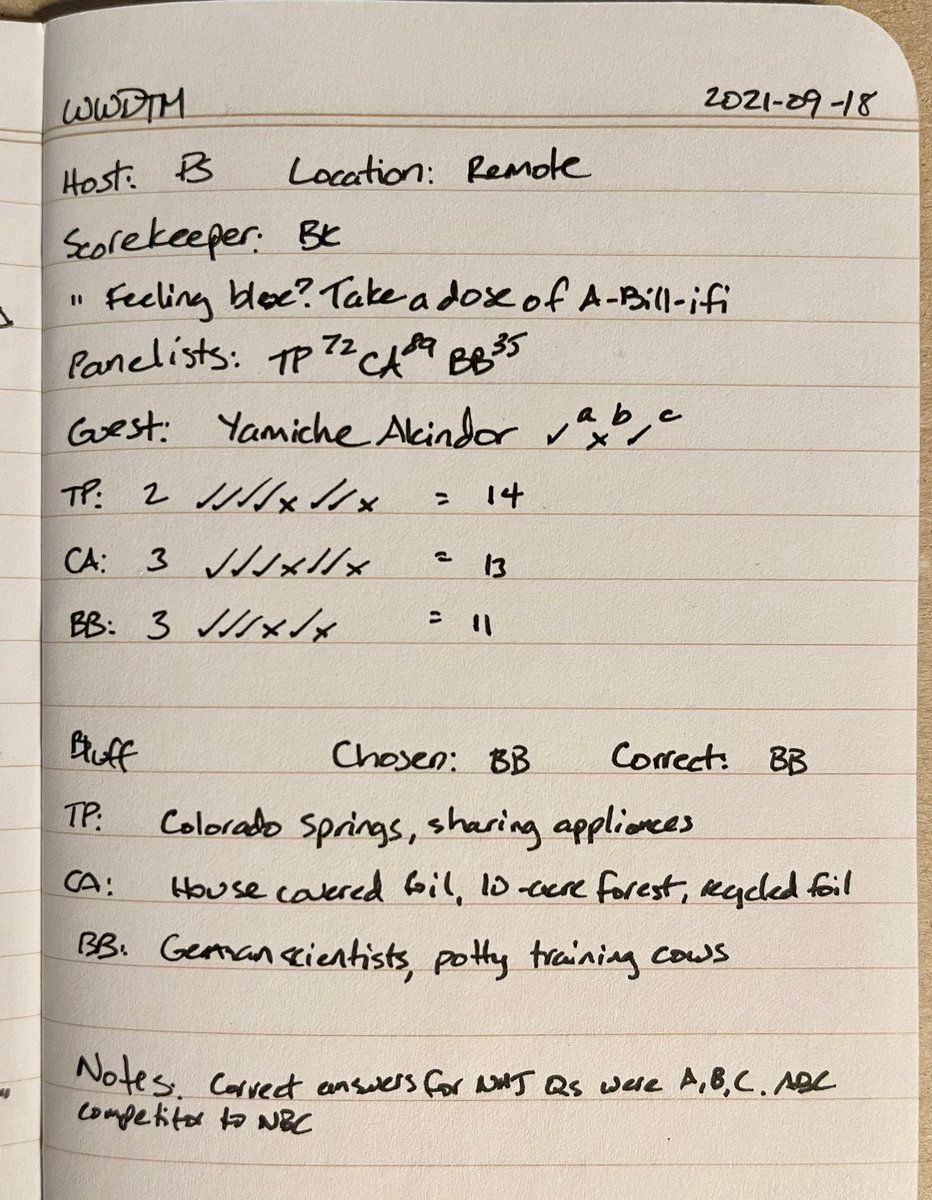 WWDTM 2021-09-18
Host: PS Location: Remote
Scorekeeper: BK
" Feeling blue? Take a dose of A-Bill-ifi
Panelists: TP 72 CA 89 BB 35
Guest: Yamiche Alcindor ✓ a x b ✓ c
TP: 2 ✓✓✓✓x✓✓x = 14
CA: 3 ✓✓✓x✓✓x = 13
BB: 3 ✓✓✓x✓x = 11
Bluff Chosen: BB Correct: BB
TP: Colorado Springs, sharing appliances
CA: House covered foil, 10-acre forest, recycled foil
BB: German scientists, potty training cows
Notes: Correct answers for NMJ Qs were A, B, C. ABC
competitor to NBC